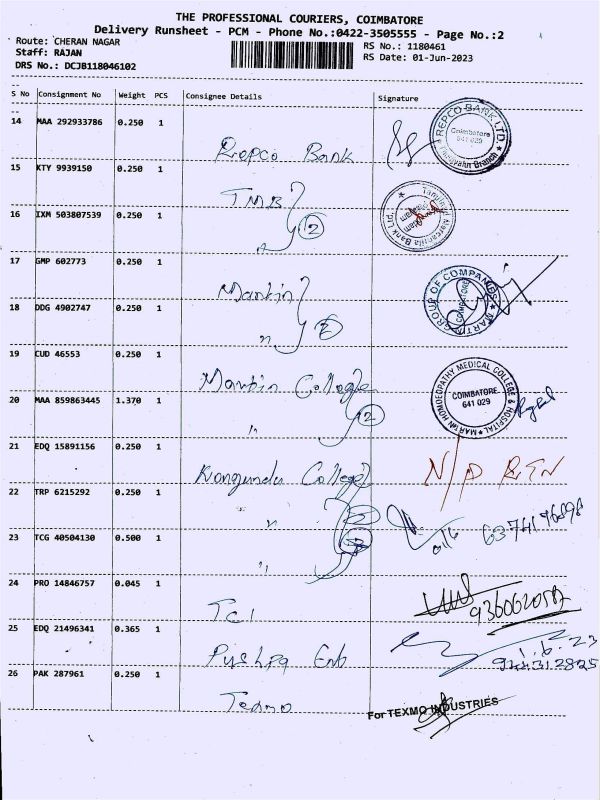 THE PROFESSIONAL COURIERS, COIMBATORE
Delivery Runsheet - PCM - Phone No.:0422-3505555 - Page No.:2
Route: CHERAN NAGAR
RS No.: 1180461
Staff: RAJAN
RS Date: 01-Jun-2023
DRS No.: DCJB118046102
S No Consignment No Weight PCS Consignee Details Signature
14 MAA 292933786 0.250 1 Repco Bank
REPCO BANK LTD. Coimbatore 641 029 Branch
15 KTY 9939150 0.250 1 TMB
16 IXM 503807539 0.250 1 " 2
Tamilnad Mercantile Bank Ltd
17 GMP 602773 0.250 1 Martin
18 DDG 4902747 0.250 1 " 2
MARTIN GROUP OF COMPANIES COIMBATORE
19 CUD 46553 0.250 1 Martin College
20 MAA 859863445 1.370 1 " 2
MARTIN HOMOEOPATHY MEDICAL COLLEGE & HOSPITAL COIMBATORE 641 029
21 EDQ 15891156 0.250 1 Kongundu College N/D RTN
22 TRP 6215292 0.250 1 "
23 TCG 40504130 0.500 1 "
6374196898
24 PRO 14846757 0.045 1 TCI
25 EDQ 21496341 0.365 1 Pushpa Ent 1.6.23
26 PAK 287961 0.250 1 Texmo
For TEXMO INDUSTRIES